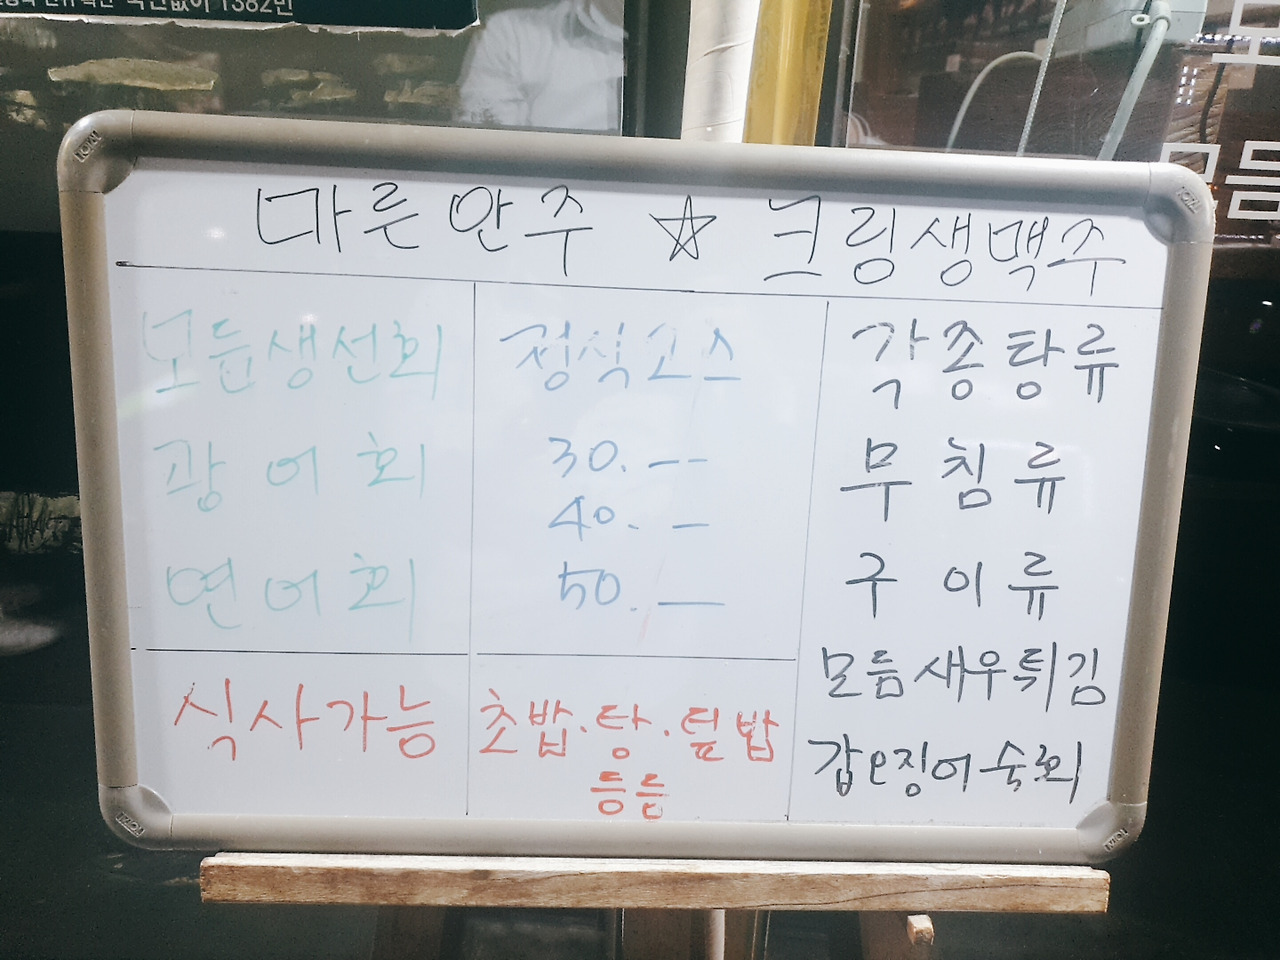 1382만
마른안주 ☆ 크림생맥주
모듬생선회
광어회
연어회
정식코스
30. --
40. -
50. —
각종탕류
무침류
구이류
모듬새우튀김
갑오징어숙회
식사가능
초밥·탕·덮밥
등등